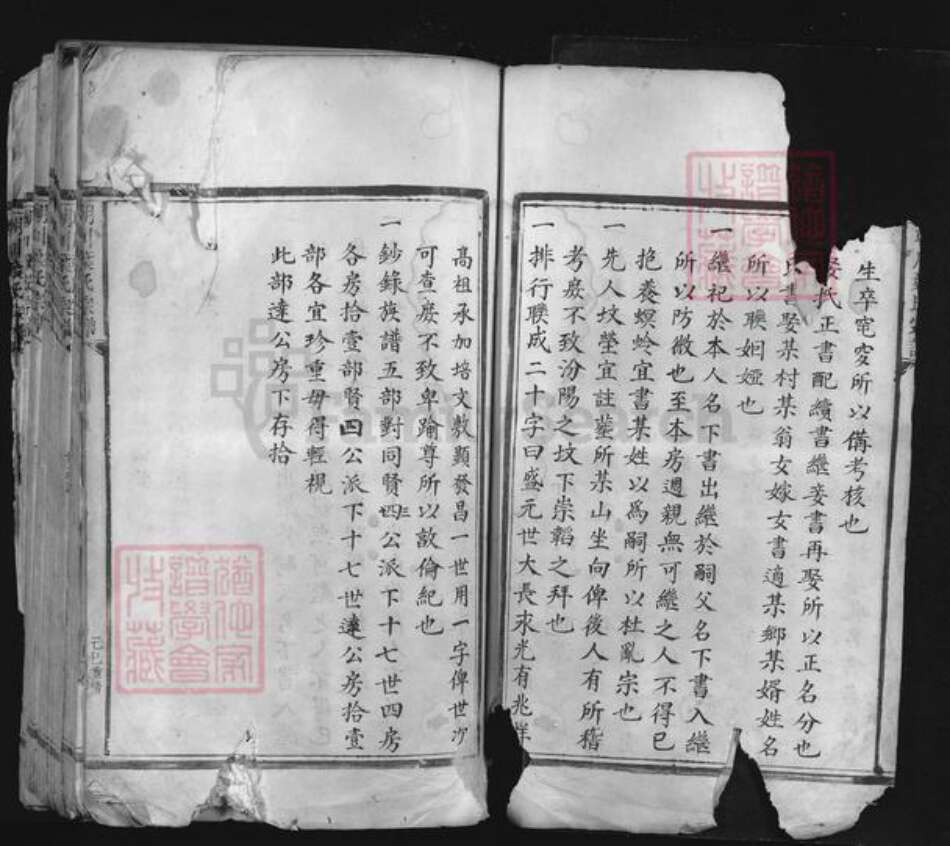 生卒窀穸所以備考核也
娶氏正書配續書繼妾書再娶所以正名分也
氏書娶某村某翁女嫁女書適某鄉某婿姓名
所以聯姻婭也
一繼祀於本人名下書出繼於嗣父名下書入繼
所以防微也至本房週親無可繼之人不得已
抱養螟蛉宜書某姓以爲嗣所以杜亂宗也
一先人坟塋宜註塟所某山坐向俾後人有所稽
考庶不致汾陽之坟下崇韜之拜也
一排行聯成二十字曰盛元世大長求光有兆祥
高祖承加培文教顯發昌一世用一字俾世次
可查庶不致卑踰尊所以敦倫紀也
一鈔錄族譜五部對同賢四公派下十七世四房
各房拾壹部賢四公派下十七世達公房拾壹
部各宜珍重毋得輕視
此部達公房下存拾
己巳重脩
猶他家譜學會特藏
猶他家譜學會特藏
FamilySearch